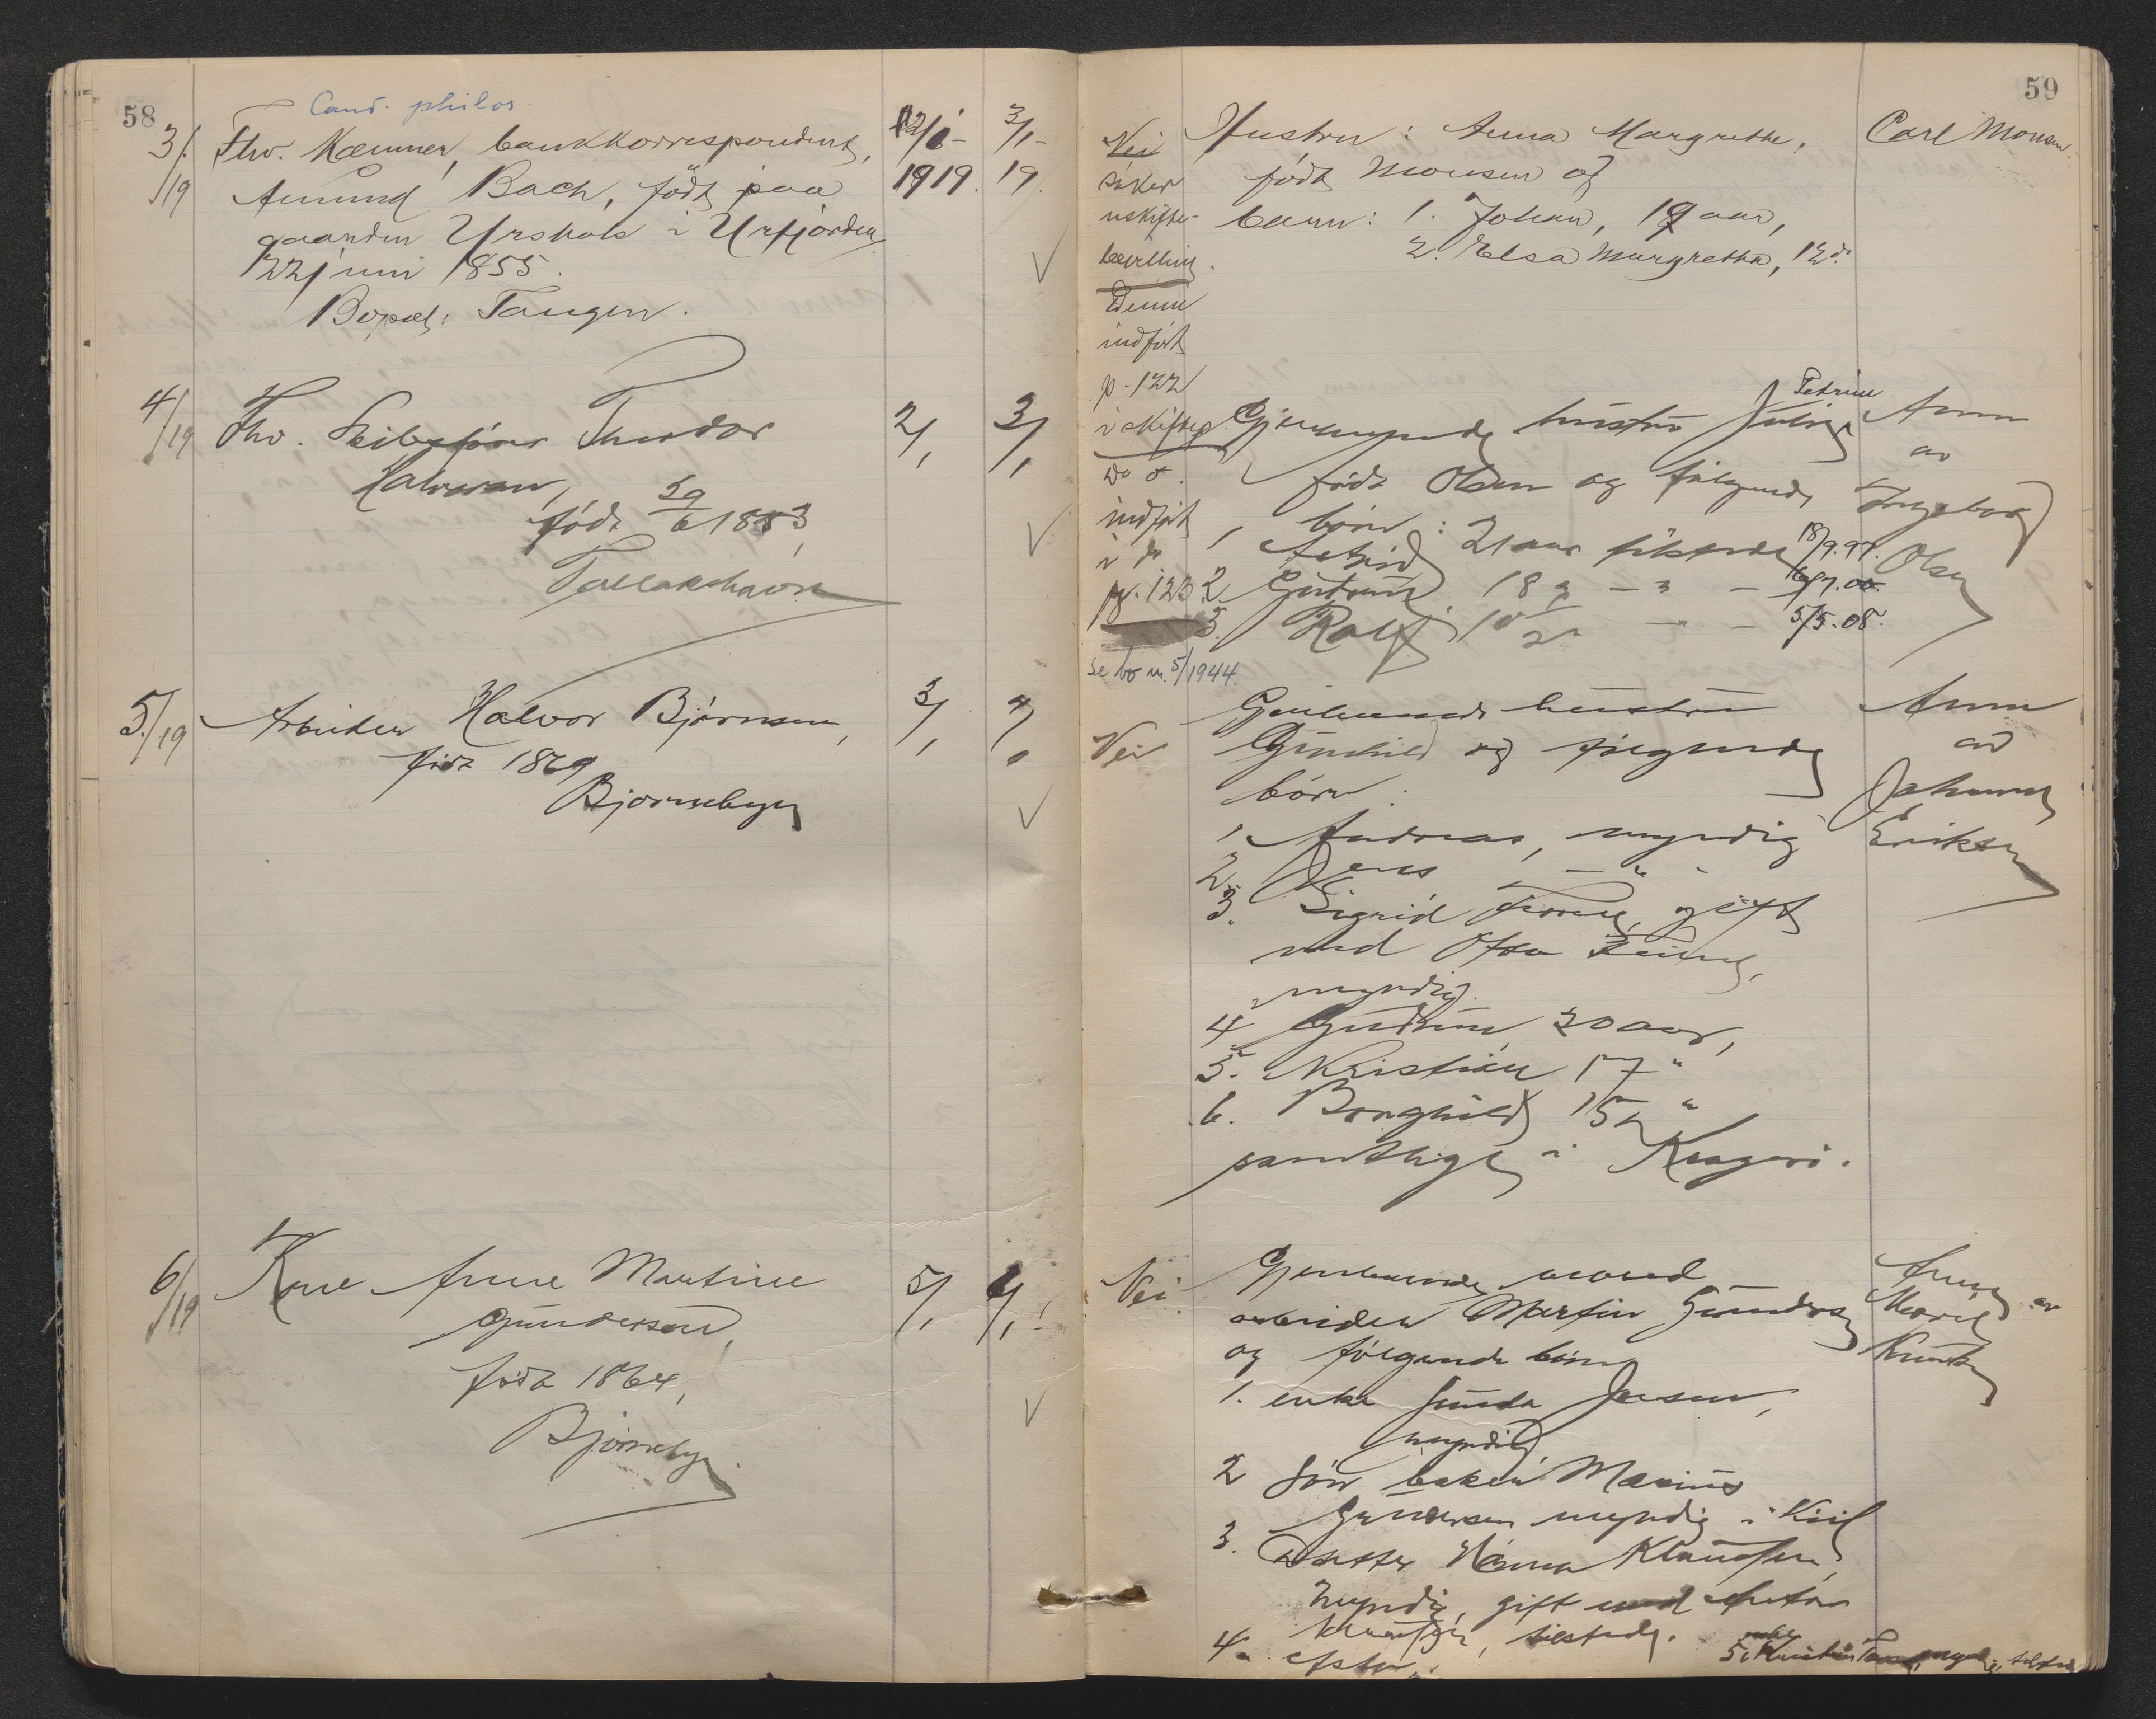 58
Cand. philos.
3/19 Fhv. Kæmner, bankkorrespondent, 2/1- 3/1-
Amund Bach, født paa 1919. 19.
gaarden Urskok i Urfjorden
22 juni 1855.
Bopæl: Tangen.
4/19 Fhv. Theodor 2/1 3/1
Halvorsen,
født 6 1883,
Tallakshavn
5/19 Arbeider Halvor Bjørnsen, 3/1
født 1869
Bjørnsbyen
6/19 Kone Anne Martine 5/1 6/1
Gundersen,
født 1864,
Bjørnsbyen
59
Nei
søker
uskifte-
bevilling.
Denne
indført
p. 122
i skiftep.
indført
i do
pg. 123
Se bo nr. 5/1944.
Hustru: Anna Margrethe, Carl Monsen.
født Monsen og
barn: 1. Johan, 19 aar,
2. Elsa Margrethe, 12 do.
Petrine
Gjenlevende hustru Julie Anm
født Olsen og følgende av
børn: Ingeborg
1 Astrid 21 aar tilstede 18/9.97. Olsen
2 Gudrun 18 " - " -
3. Ralf 10 1/2 - " - 5/5.08.
Nei Gjenlevende hustru Anm
Gunhild og følgende av
børn: Johanne
1 Andreas, myndig Eriksen
2 Jens - " -
3. Sigrid gift
med
myndig.
4 Gudrun 20 aar,
5. Kristian 17 "
6. Borghild 15 "
samtlige i Kragerø.
Nei. Gjenlevende mand Anm av
arbeider Martin Gundersen
og følgende børn
1. enke Gunda Jensen,
myndig
2 Søn baker Marius
Gundersen myndig i
3. Datter Hanna Klausen,
myndig, gift med Anton
Klausen, tilstede.
4. Ester,
5.